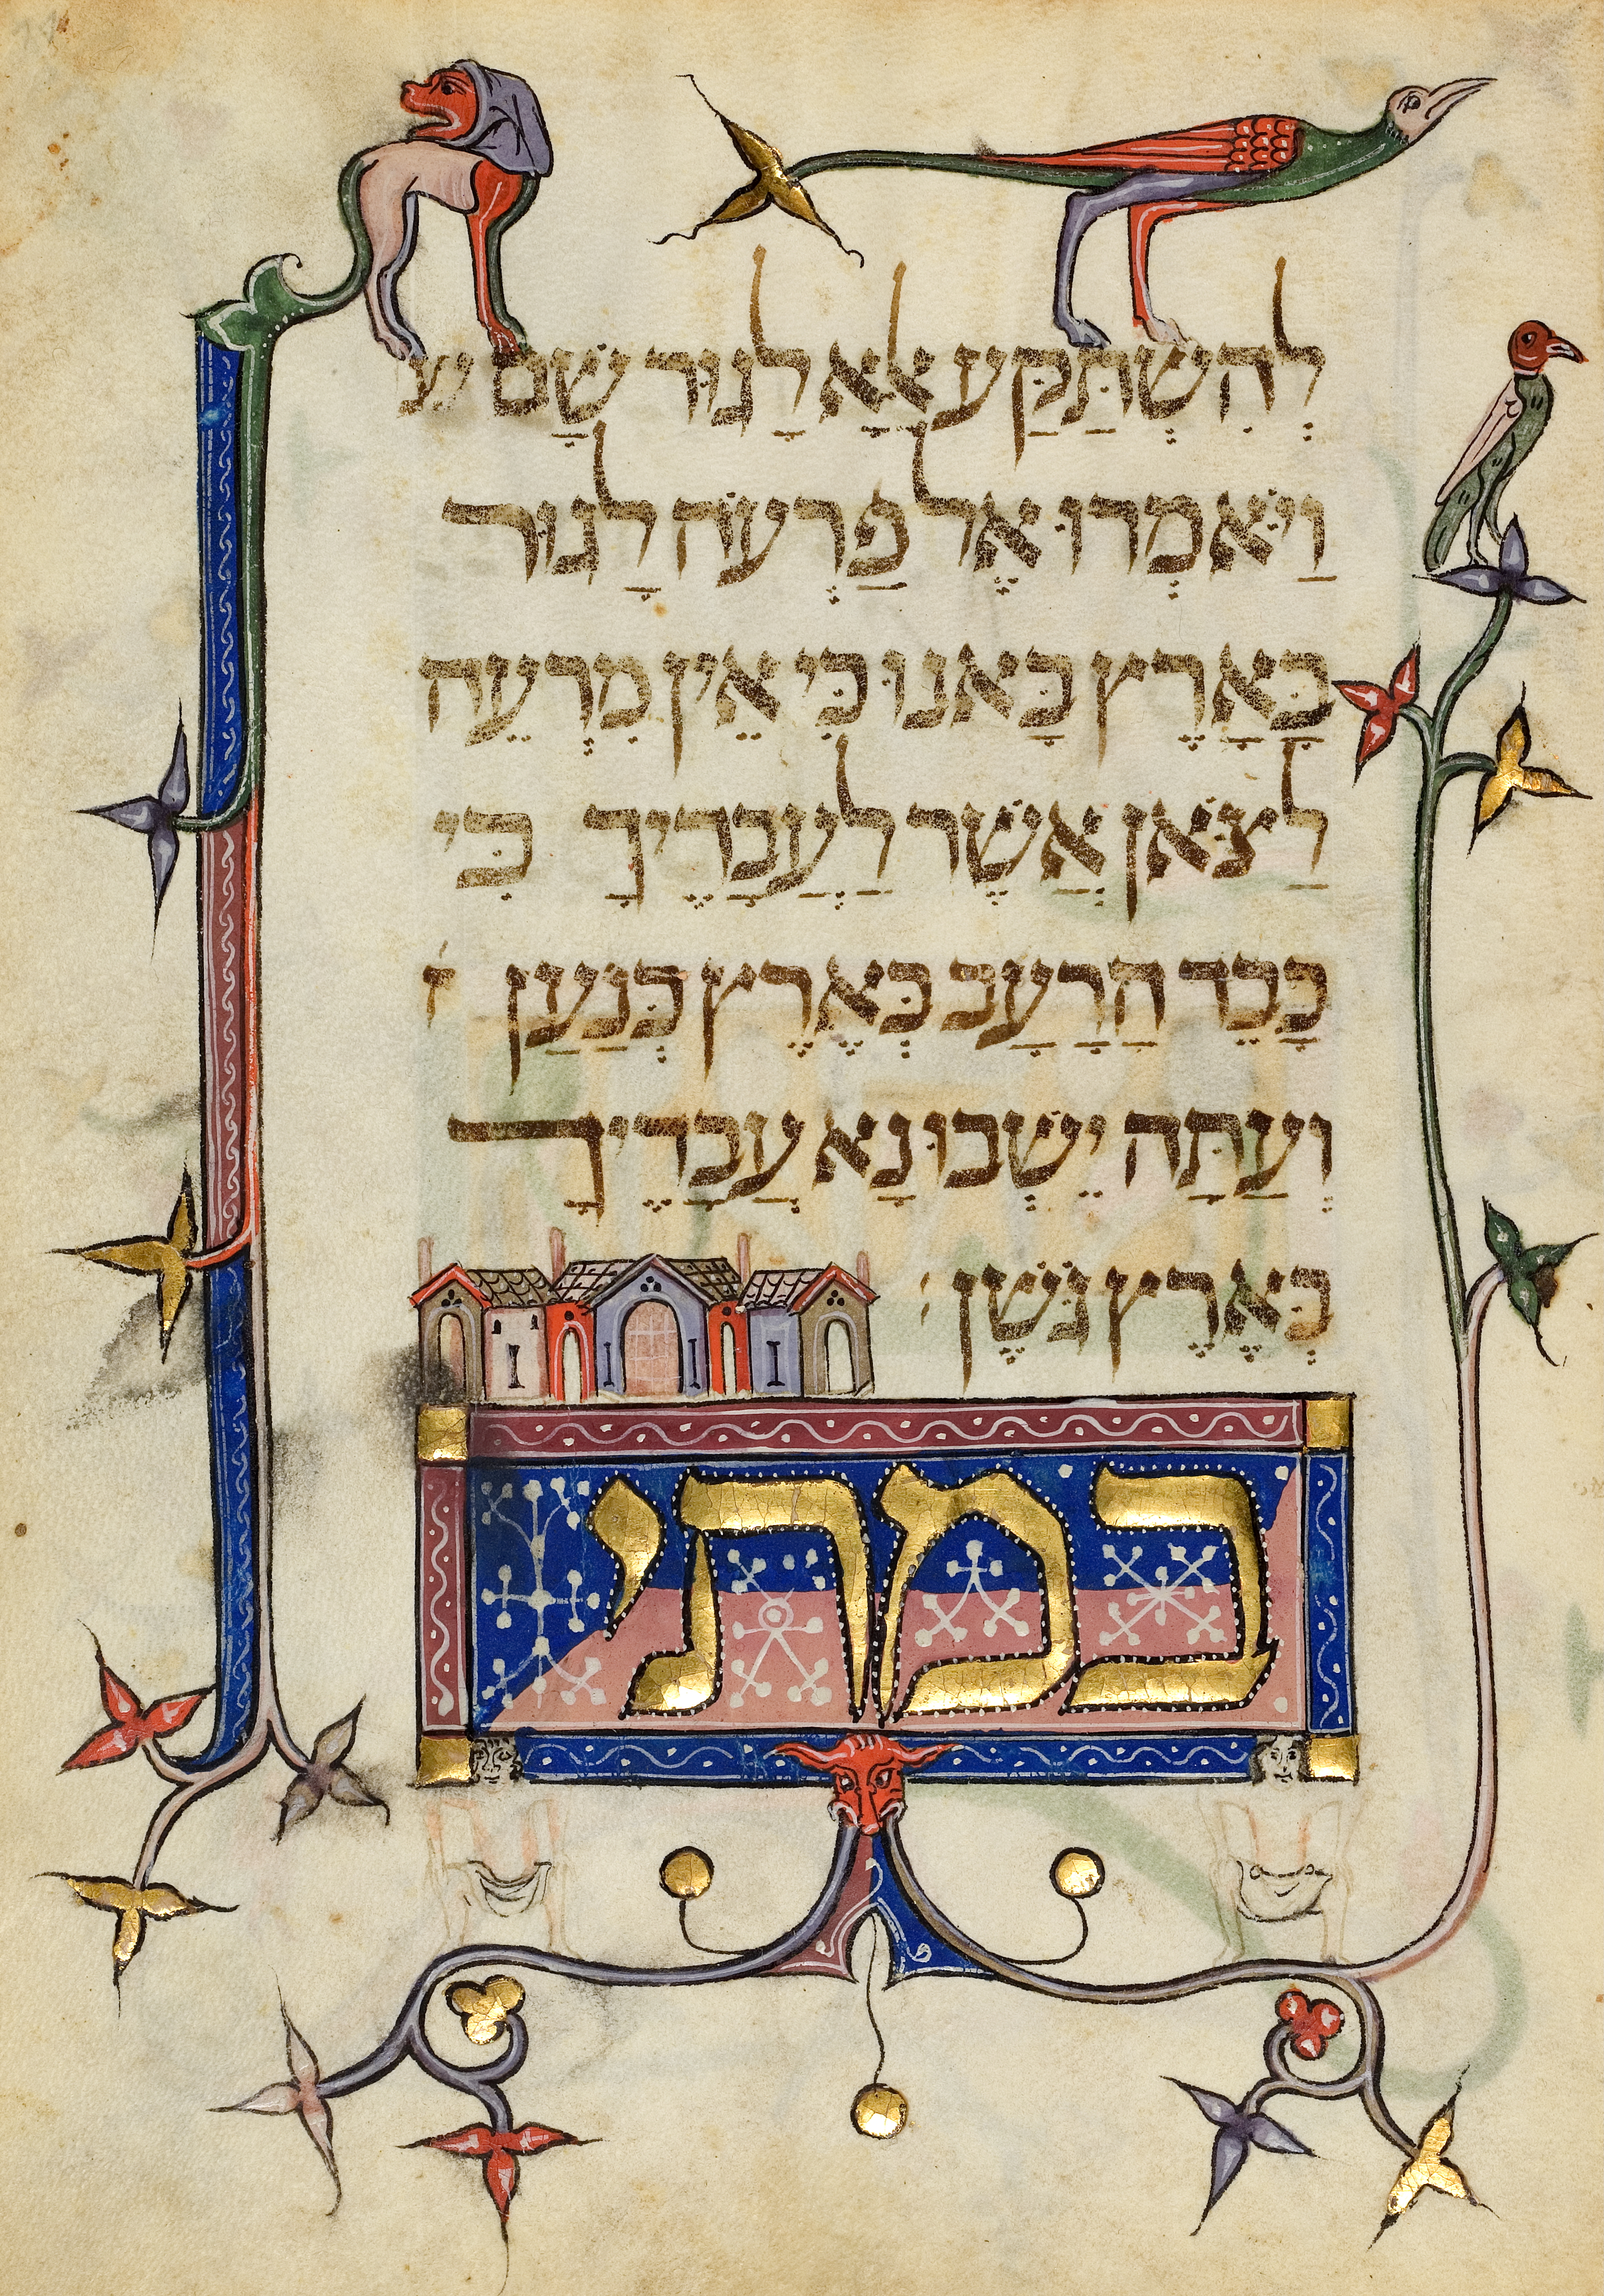 לְהִשְׁתַּקַּע אלָּא לָגוּר שָׁם
וַיֹּאמְרוּ אֶל פַּרְעֹה לָגוּר
בָּאָרֶץ בָּאנוּ כִּי אֵין מִרְעֶה
לַצֹּאן אֲשֶׁר לַעֲבָדֶיךָ כִּי
כָּבֵד הָרָעָב בְּאֶרֶץ כְּנַעַן ו
וְעַתָּה יֵשְׁבוּ נָא עֲבָדֶיךָ
בְּאֶרֶץ גֹּשֶׁן:
במתי